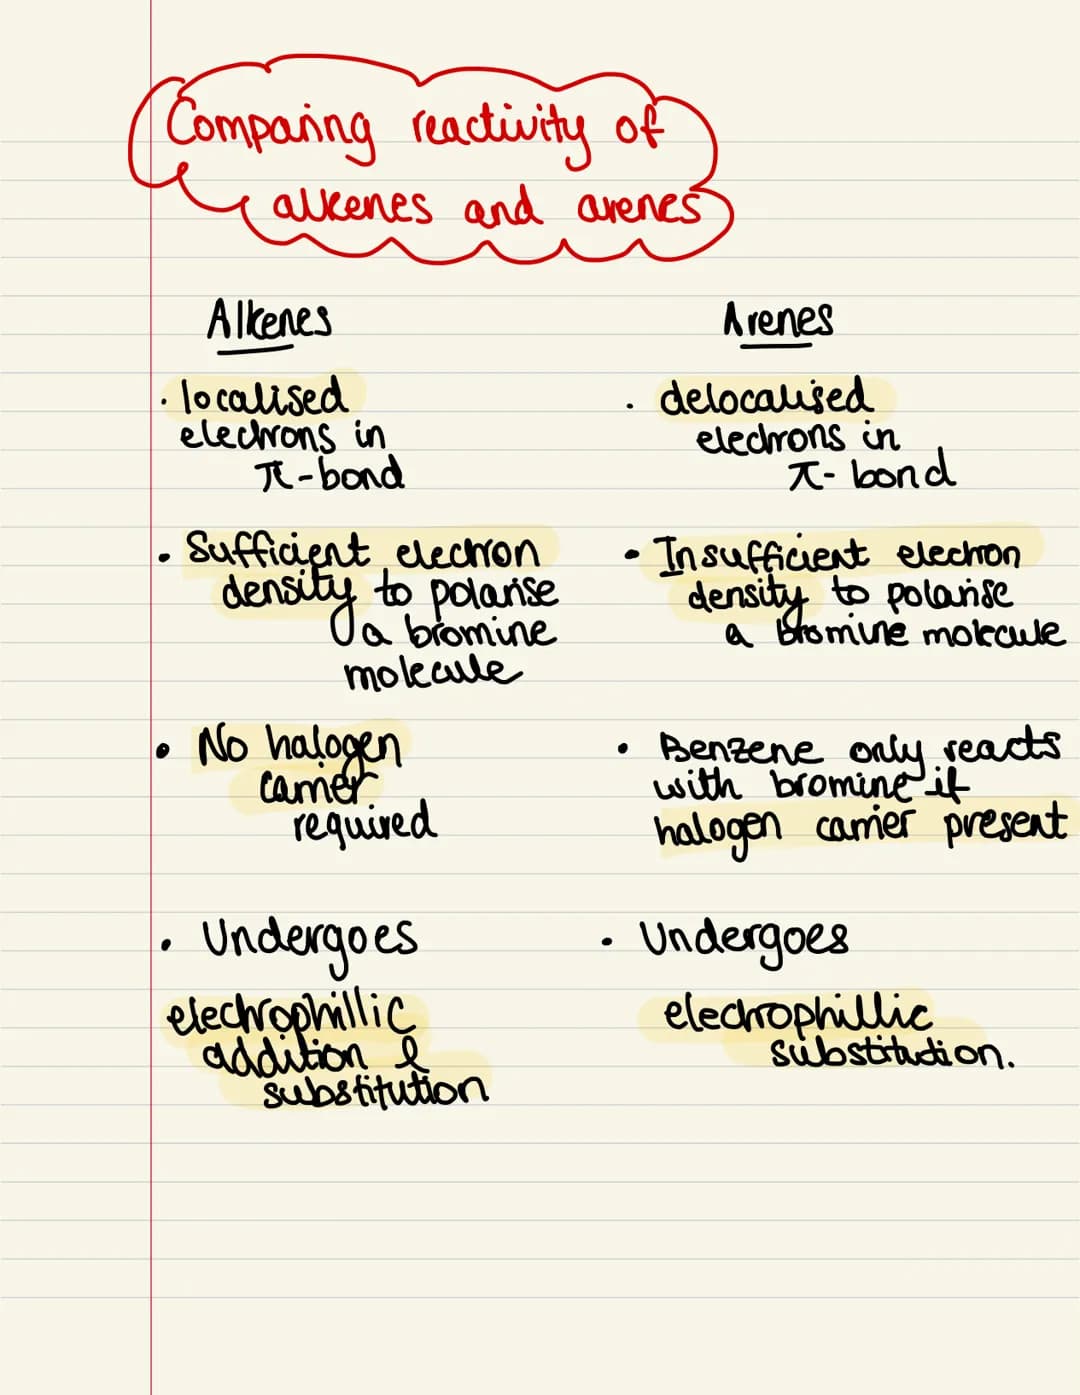 Comparing reactivity of
alkenes and arenes
Alkenes
· localised
electrons in
π-bond
· Sufficient electron
density to polarise
a bromine
molecule
· No halogen
carrier
required
· Undergoes
electrophillic
addition &
substitution
Arenes
· delocalised
electrons in
π-bond
· Insufficient electron
density to polarise
a bromine molecule
· Benzene only reacts
with bromine if
halogen carrier present
· Undergoes
electrophillic
substitution.